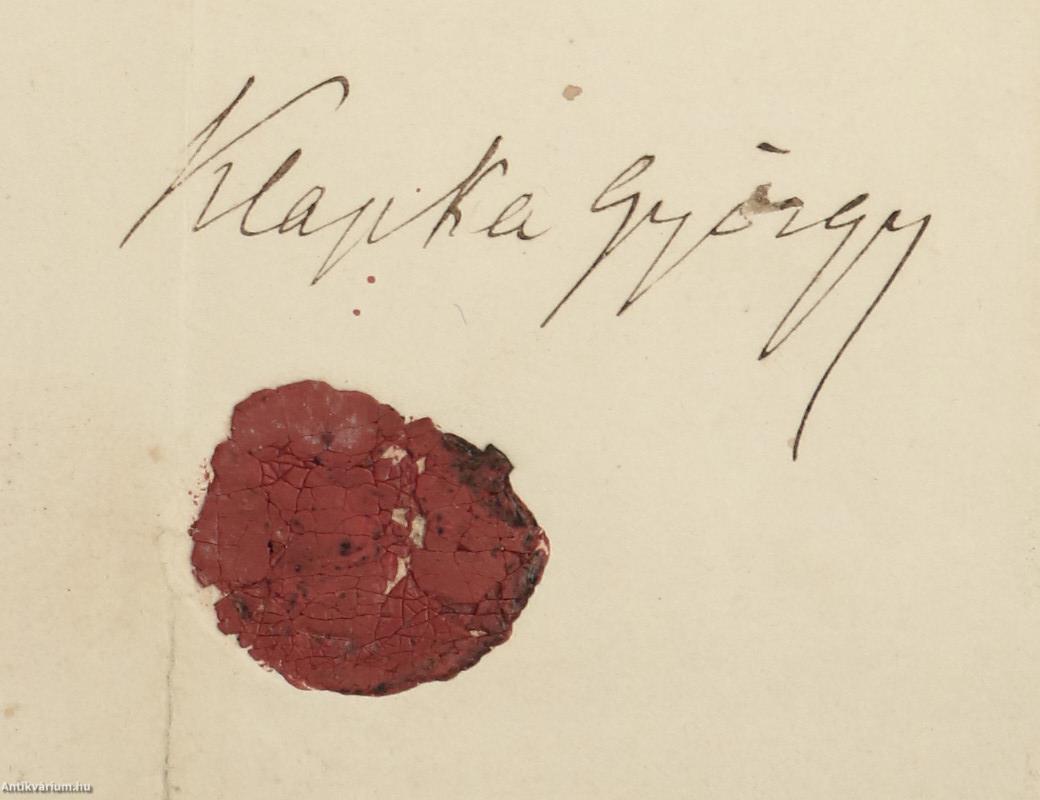 Klapka György
Antikvárium.hu